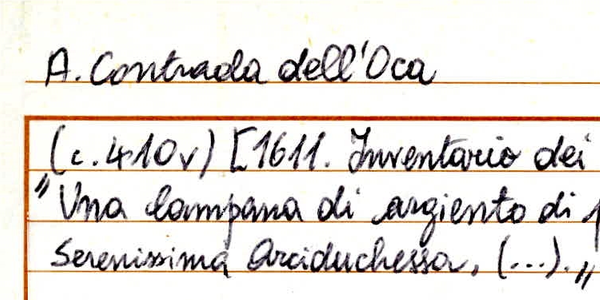 A. Contrada dell'Oca
(c. 410v) [1611. Inventario dei
"Una lampana di argiento di
Serenissima Arciduchessa, (...)."